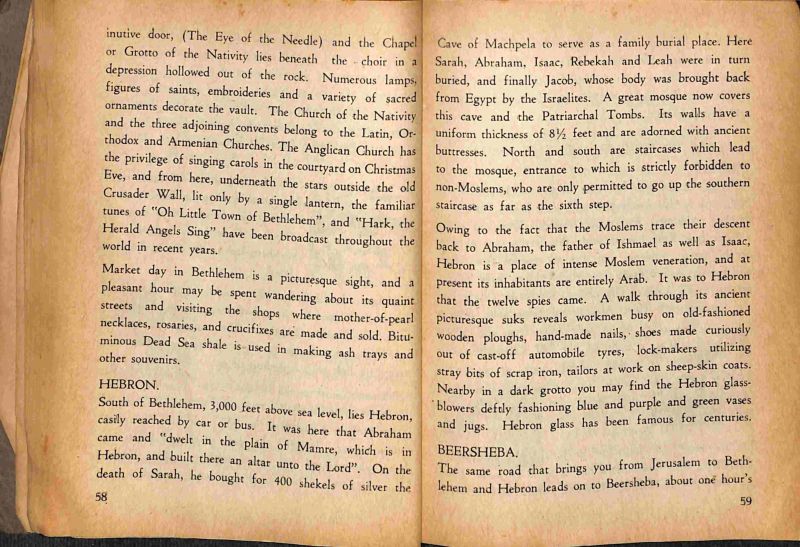 inutive door, (The Eye of the Needle) and the Chapel
or Grotto of the Nativity lies beneath the choir in a
depression hollowed out of the rock. Numerous lamps,
figures of saints, embroideries and a variety of sacred
ornaments decorate the vault. The Church of the Nativity
and the three adjoining convents belong to the Latin, Or-
thodox and Armenian Churches. The Anglican Church has
the privilege of singing carols in the courtyard on Christmas
Eve, and from here, underneath the stars outside the old
Crusader Wall, lit only by a single lantern, the familiar
tunes of "Oh Little Town of Bethlehem", and "Hark, the
Herald Angels Sing" have been broadcast throughout the
world in recent years.
Market day in Bethlehem is a picturesque sight, and a
pleasant hour may be spent wandering about its quaint
streets and visiting the shops where mother-of-pearl
necklaces, rosaries, and crucifixes are made and sold. Bitu-
minous Dead Sea shale is used in making ash trays and
other souvenirs.
HEBRON.
South of Bethlehem, 3,000 feet above sea level, lies Hebron,
easily reached by car or bus. It was here that Abraham
came and "dwelt in the plain of Mamre, which is in
Hebron, and built there an altar unto the Lord". On the
death of Sarah, he bought for 400 shekels of silver the
58
Cave of Machpela to serve as a family burial place. Here
Sarah, Abraham, Isaac, Rebekah and Leah were in turn
buried, and finally Jacob, whose body was brought back
from Egypt by the Israelites. A great mosque now covers
this cave and the Patriarchal Tombs. Its walls have a
uniform thickness of 8½ feet and are adorned with ancient
buttresses. North and south are staircases which lead
to the mosque, entrance to which is strictly forbidden to
non-Moslems, who are only permitted to go up the southern
staircase as far as the sixth step.
Owing to the fact that the Moslems trace their descent
back to Abraham, the father of Ishmael as well as Isaac,
Hebron is a place of intense Moslem veneration, and at
present its inhabitants are entirely Arab. It was to Hebron
that the twelve spies came. A walk through its ancient
picturesque suks reveals workmen busy on old-fashioned
wooden ploughs, hand-made nails, shoes made curiously
out of cast-off automobile tyres, lock-makers utilizing
stray bits of scrap iron, tailors at work on sheep-skin coats.
Nearby in a dark grotto you may find the Hebron glass-
blowers deftly fashioning blue and purple and green vases
and jugs. Hebron glass has been famous for centuries.
BEERSHEBA.
The same road that brings you from Jerusalem to Beth-
lehem and Hebron leads on to Beersheba, about one hour's
59